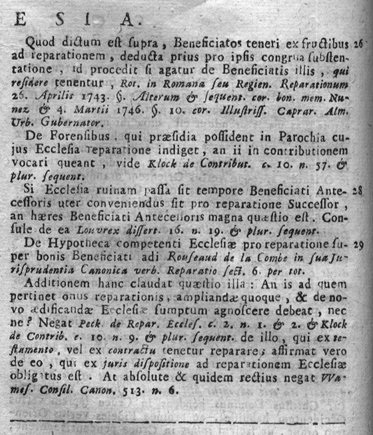 E S I A.
Quod dictum est supra, Beneficiatos teneri ex fructibus 26
ad reparationem, deducta prius pro ipsis congrua substen-
tatione, id procedit si agatur de Beneficiatis illis, qui
residere tenentur, Rot. in Romana seu Regien. Reparationum
26. Aprilis 1743. §. Alterum & sequent. cor. bon. mem. Nu-
nez & 4. Martii 1746. §. 10. cor. Illustriss. Caprar. Alm.
Urb. Gubernator.
De Forensibus, qui præsidia possident in Parochia cu-
jus Ecclesia reparatione indiget, an ii in contributionem
vocari queant, vide Klock de Contribut. c. 10. n. 57. &
plur. sequent.
Si Ecclesia ruinam passa sit tempore Beneficiati Ante- 28
cessoris uter conveniendus sit pro reparatione Successor,
an hæres Beneficiati Antecessoris magna quæstio est. Con-
sule de ea Louvrex dissert. 16. n. 19. & plur. sequent.
De Hypotheca competenti Ecclesiæ pro reparatione su- 29
per bonis Beneficiati adi Rouseaud de la Combe in sua Ju-
risprudentia Canonica verb. Reparatio sect. 6. per tot.
Additionem hanc claudat quæstio illa: An is ad quem
pertinet onus reparationis, ampliandæ quoque, & de no-
vo ædificandæ Ecclesiæ sumptum agnoscere debeat, nec
ne? Negat Peck de Repar. Eccles. c. 2. n. 1. & 2. & Klock
de Contrib. c. 10. n. 9. & plur. sequent. de illo, qui ex te-
stamento, vel ex contractu tenetur reparare; affirmat vero
de eo, qui ex juris dispositione ad reparationem Ecclesiæ
obligatus est. At absolute & quidem rectius negat Wa-
mes. Consil. Canon. 513. n. 6.